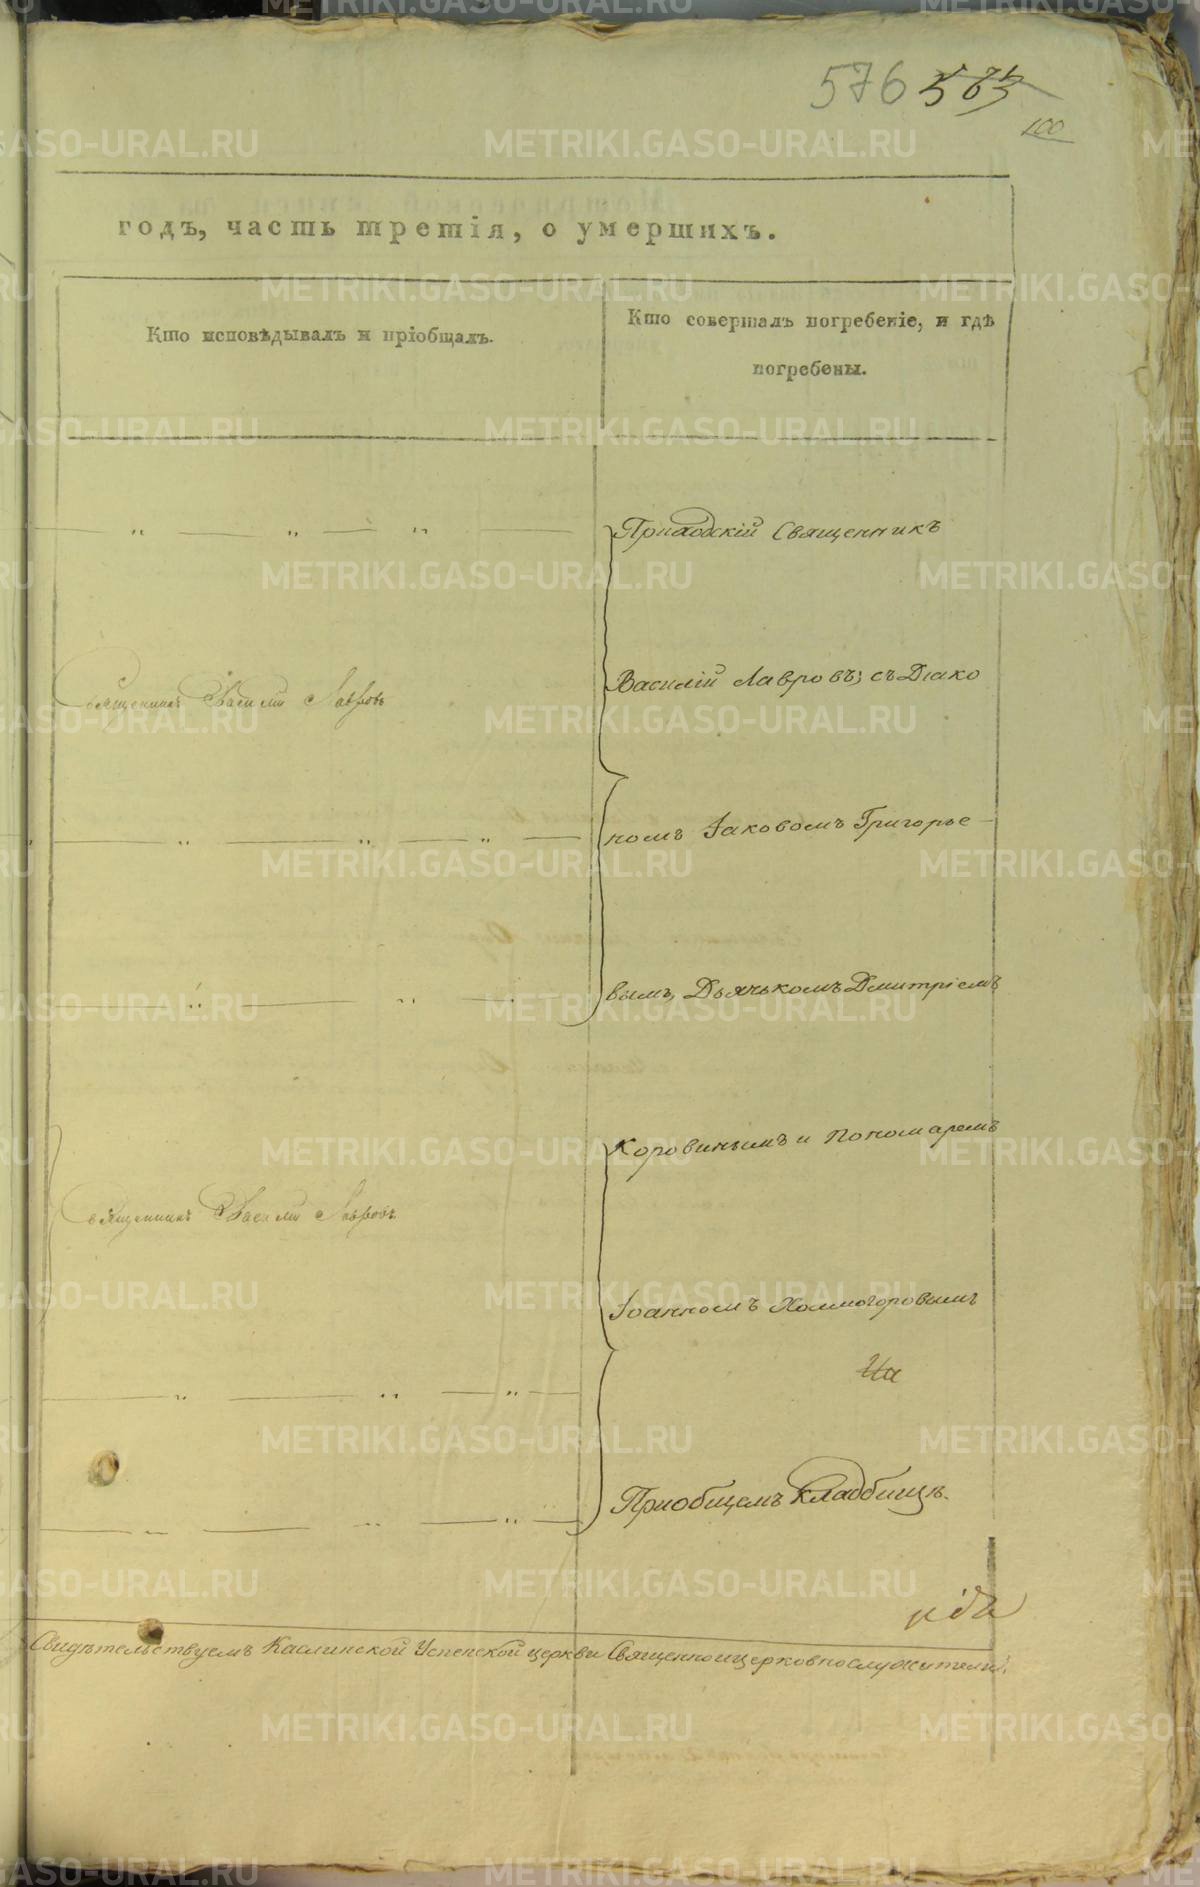 576 563
100
годъ, часть третія, о умершихъ.
Кто исповѣдывалъ и пріобщалъ.
Кто совершалъ погребеніе, и гдѣ
погребены.
Приходскій Священникъ
Священникъ Василій Лавровъ
Василій Лавровъ; съ Діако
номъ Іаковомъ Григорье
вымъ, Дьячькомъ Дмитріемъ
Коровинымъ и Пономаремъ
Священникъ Василій Лавровъ
Іоанномъ Холмогоровымъ
На
Приобщемъ Кладбищѣ.
Свидѣтельствуемъ Каслинской Успенской церкви Священноицерковнослужители:
METRIKI.GASO-URAL.RU